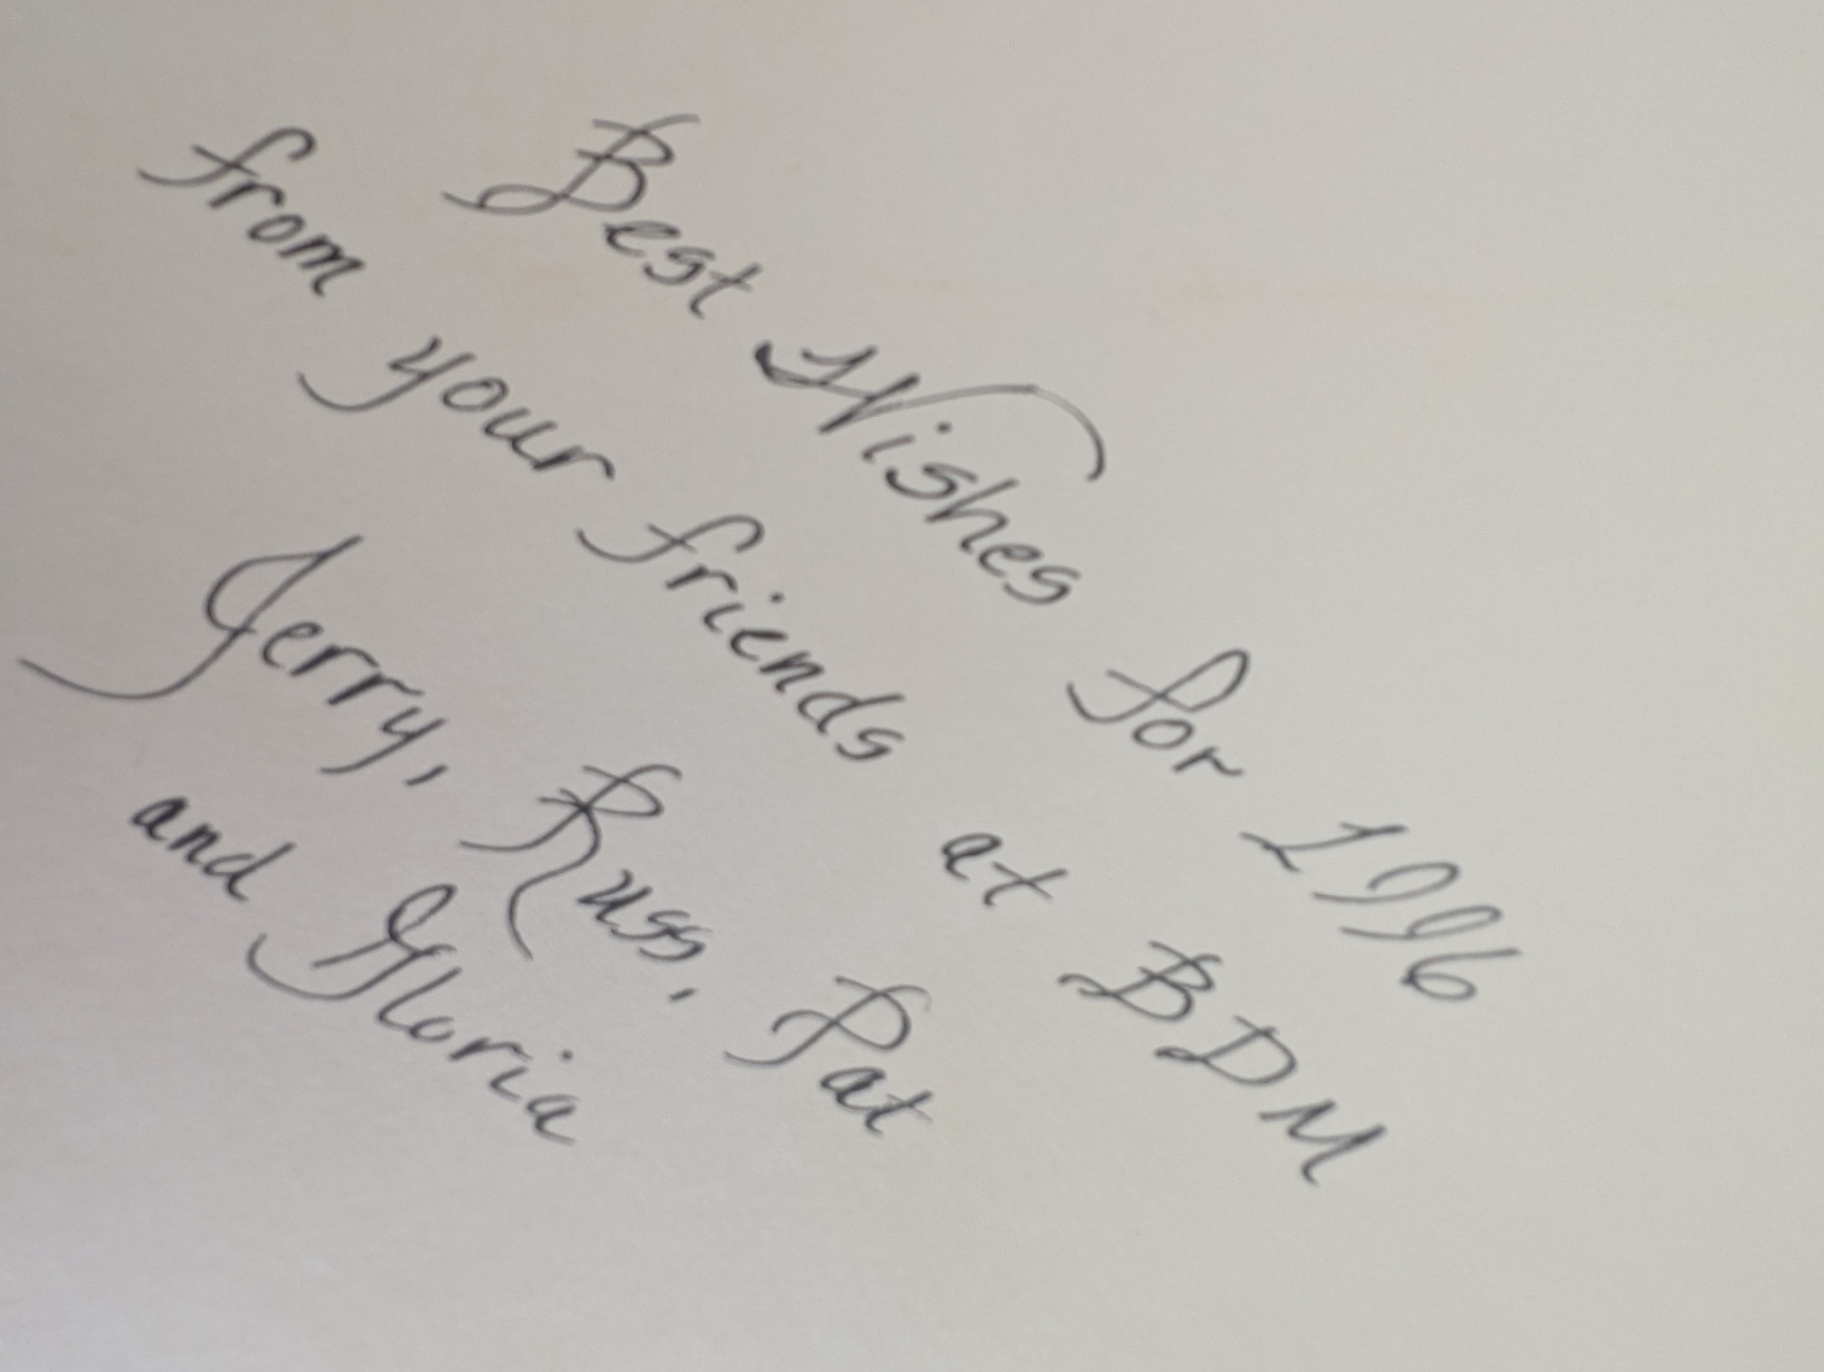 Best Wishes for 1996
from your friends at BDM
Jerry, Russ, Pat
and Gloria